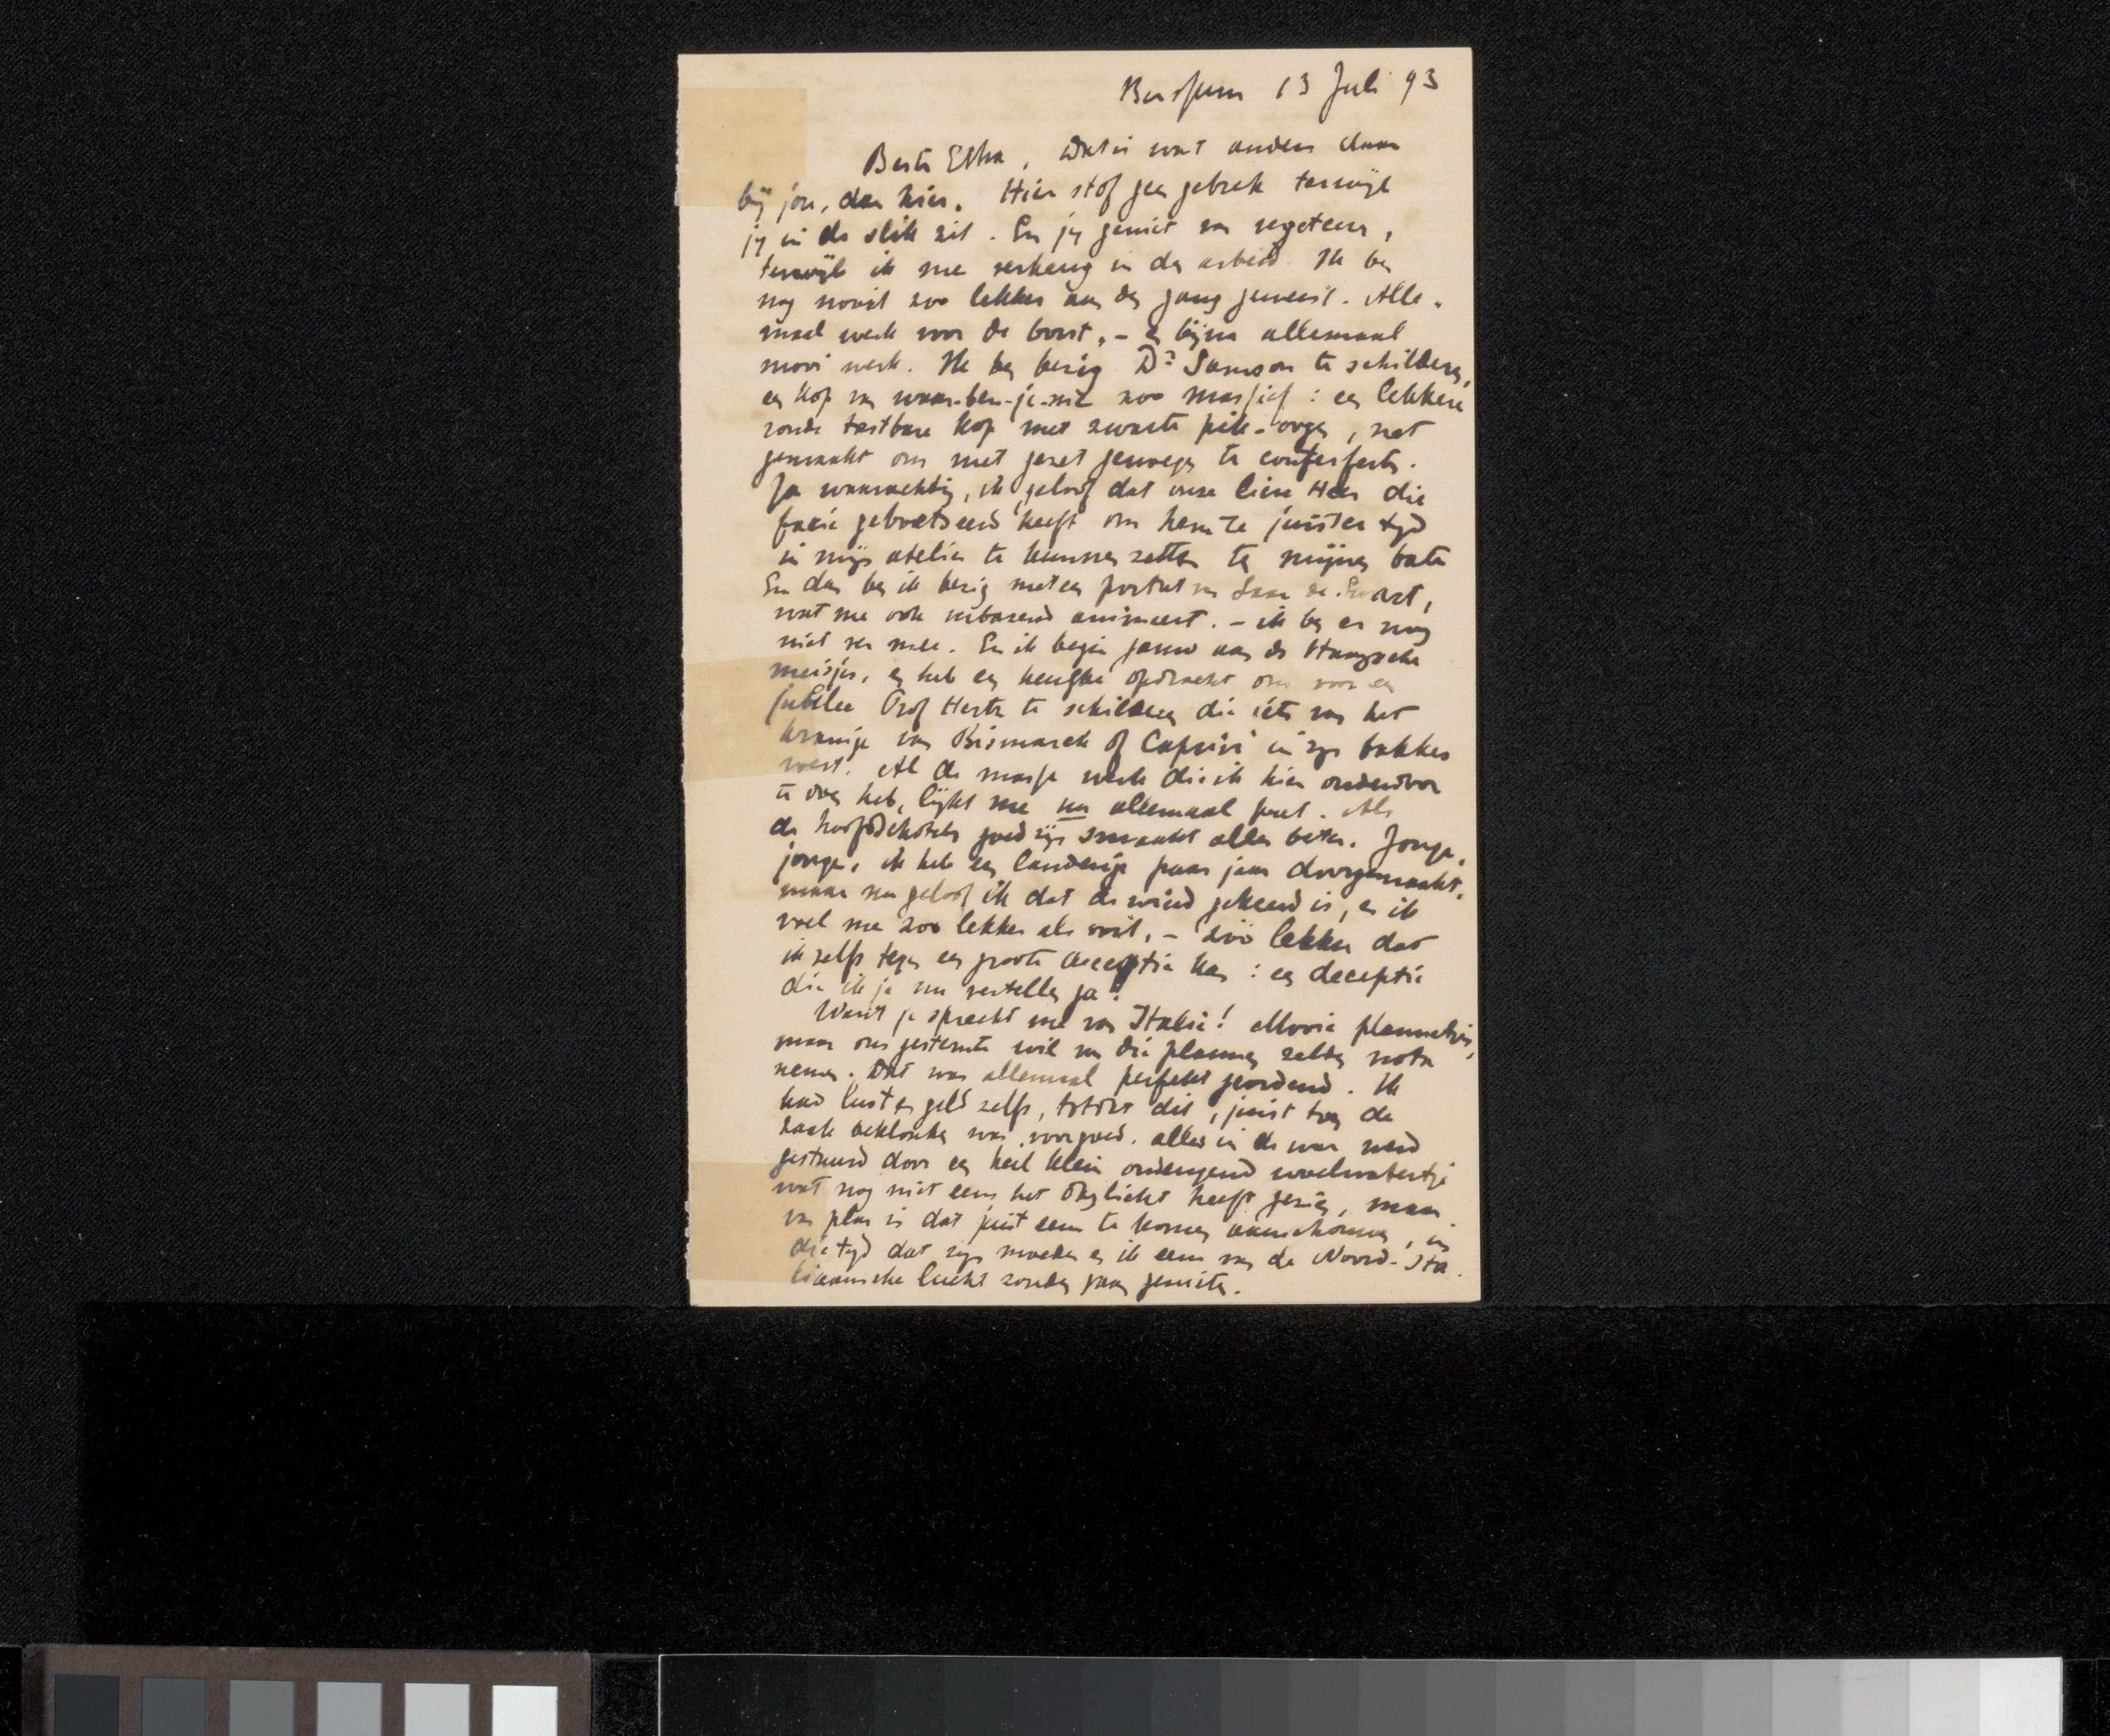 Bussum 13 Juli 93
Beste Etha, Dat is wat anders daar
bij jou, dan hier. Hier stof geen gebrek terwijl
jy in de slik zit. En jy geniet van vegeteeren,
terwijl ik me verheug in den arbeid. Ik ben
nog nooit zoo lekker aan den gang geweest. Alle-
maal werk voor de borst, - en bijna allemaal
mooi werk. Ik ben bezig Dr Samson te schilderen,
een kop van waar-ben-je-me zoo massief: een lekkere
ronde tastbare kop met zwarte pik-oogen, net
gemaakt om met genoegen te conterfeiten.
Ja waarachtig, ik geloof dat onze lieve Heer die
facie geboetseerd heeft om hem te juister tyd
in mijn atelier te kunnen zetten te mijnen bate
En dan ben ik bezig met een portret van Saar de Swart,
wat me ook verbazend animeert. - ik ben er nog
niet ver mee. En ik begin gauw aan de Haagsche
meisjes, en heb een heugelijke opdracht om voor een
jubilee Prof Hertz te schilderen die iets van het
kranige van Bismarck of Caprivi in zyn bakkes
moet. Al de massa werk die ik hier onderdoor
te doen heb, lijkt me nu allemaal pret. Als
de hoofdschotels goed zijn smaakt alles beter. Jonge,
jonge, ik heb een landerige paar jaar doorgemaakt,
maar nu geloof ik dat de wind gekeerd is, en ik
voel me zoo lekker als ooit, - zóó lekker dat
ik zelfs tegen een groote deceptie kan: een deceptie
die ik je nu vertellen ga:
Want je spreekt me van Italië! Mooie plannetjes,
maar ons gesternte wil van die plannen zelden nota
nemen. Dat was allemaal perfekt geordend. Ik
had lust en geld zelfs, totdat dit, juist toen de
zaak beklonken was voorgoed, alles in de war werd
gestuurd door een heel klein ondeugend woelwatertje
wat nog niet eens het daglicht heeft gezien, maar
van plan is dat juist eens te komen aanschouwen, in
die tyd dat zyn moeder en ik eens van de Noord-Ita
liaansche lucht zouden gaan genieten.